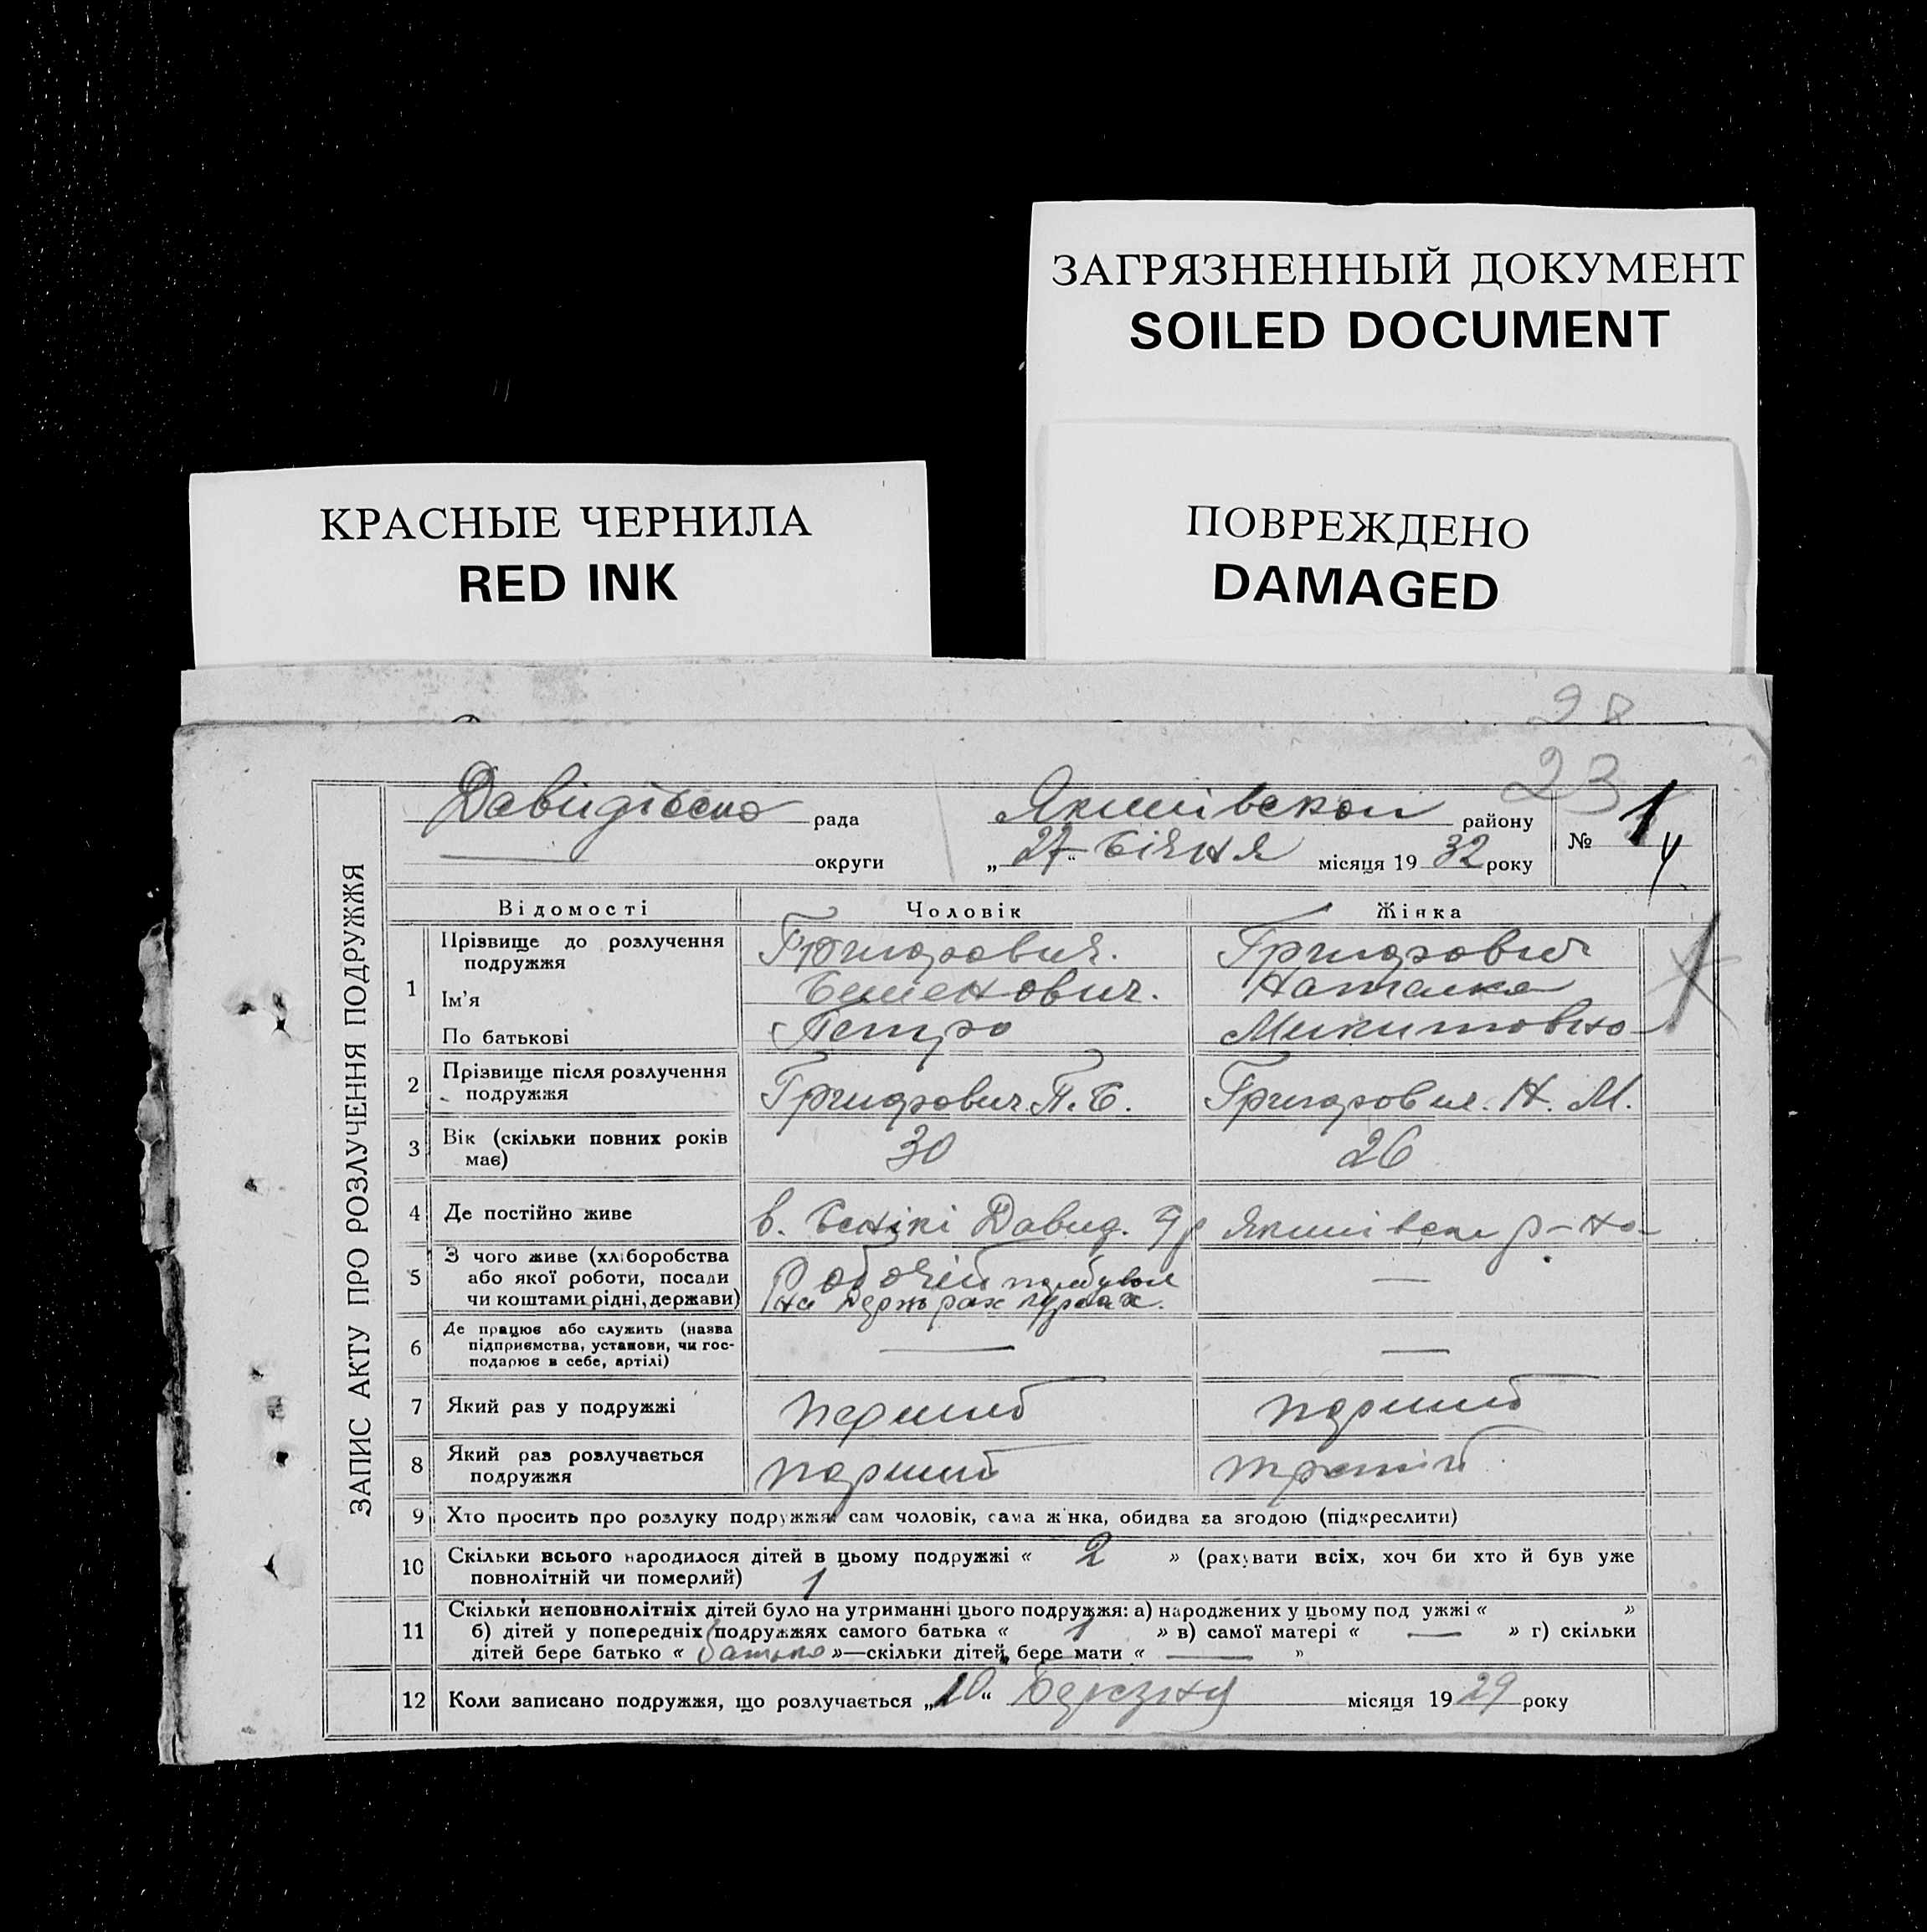 ЗАГРЯЗНЕННЫЙ ДОКУМЕНТ
SOILED DOCUMENT
КРАСНЫЕ ЧЕРНИЛА
RED INK
ПОВРЕЖДЕНО
DAMAGED
28
23
ЗАПИС АКТУ ПРО РОЗЛУЧЕННЯ ПОДРУЖЖЯ
рада
району
№ 1
округи
„ 27 “ Січня місяця 19 32 року
4
Відомості Чоловік Жінка
1
Прізвище до розлучення
подружжя
Ім'я Семенович. Наталка
По батькові Петро Микитовна
2 Прізвище після розлучення
подружжя
П. С. Н. М.
3 Вік (скільки повних років
має)
30 26
4 Де постійно живе
в. Давид. р-на
5 З чого живе (хліборобства
або якої роботи, посади
чи коштами рідні, держави)
Робочий
на курсах.
6 Де працює або служить (назва
підприємства, установи, чи гос-
подарює в себе, артілі)
7 Який раз у подружжі перший перший
8 Який раз розлучається
подружжя
перший третій
9 Хто просить про розлуку подружжя: сам чоловік, сама жінка, обидва за згодою (підкреслити)
10 Скільки всього народилося дітей в цьому подружжі « 2 » (рахувати всіх, хоч би хто й був уже
повнолітній чи померлий) 1
11 Скільки неповнолітніх дітей було на утриманні цього подружжя: а) народжених у цьому под ужжі « »
б) дітей у попередніх подружжях самого батька « 1 » в) самої матері « — » г) скільки
дітей бере батько « батько »—скільки дітей бере мати « — »
12 Коли записано подружжя, що розлучається „ 10 “ Березня місяця 19 29 року